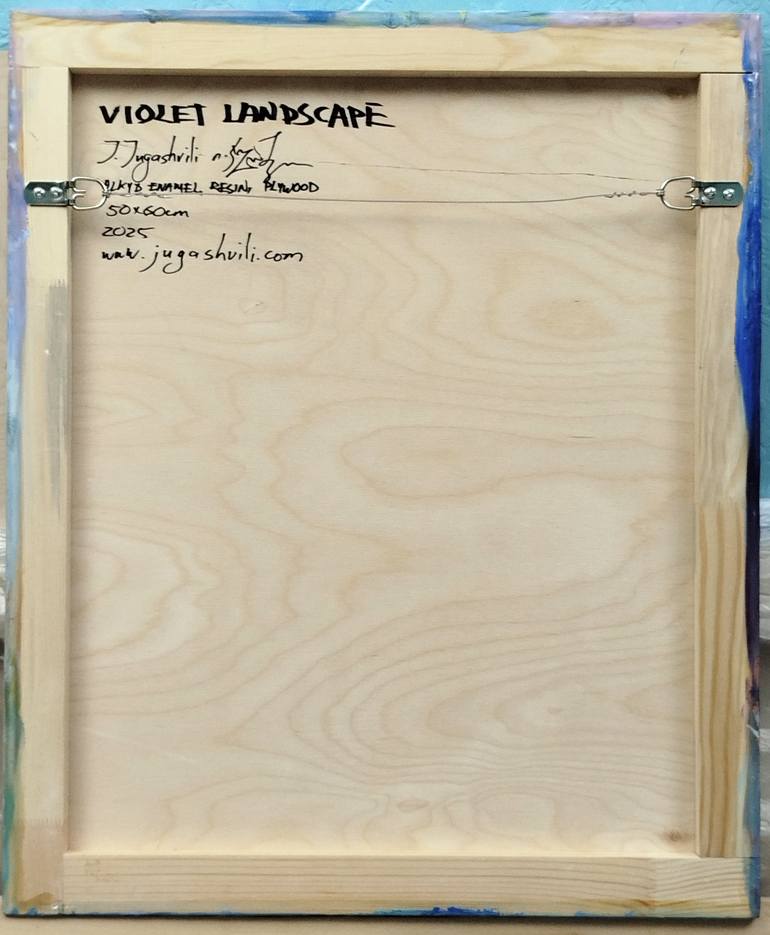 VIOLET LANDSCAPE
J. Jugashvili
ALKYD ENAMEL RESIN, PLYWOOD
50x60cm
2025
www.jugashvili.com